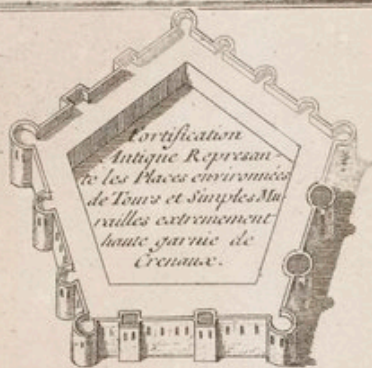 Fortification
Antique Represan-
te les Places environnées
de Tours et Simples Mu
railles extremement
haute garnie de
Crenaux.